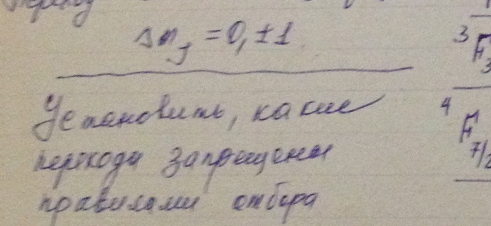 Δm_J = 0, ±1
Установить, какие
переходы запрещены
правилами отбора
³F₃
⁴F₇/₂